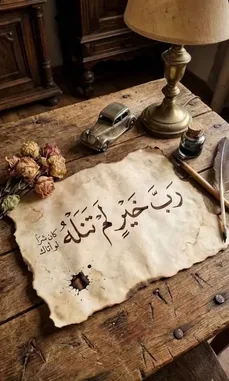 رَبَّ خَيْرٍ لَمْ تَنَلْهُ
كَانَ شَرًّا
لَوْ أَتَاكَ